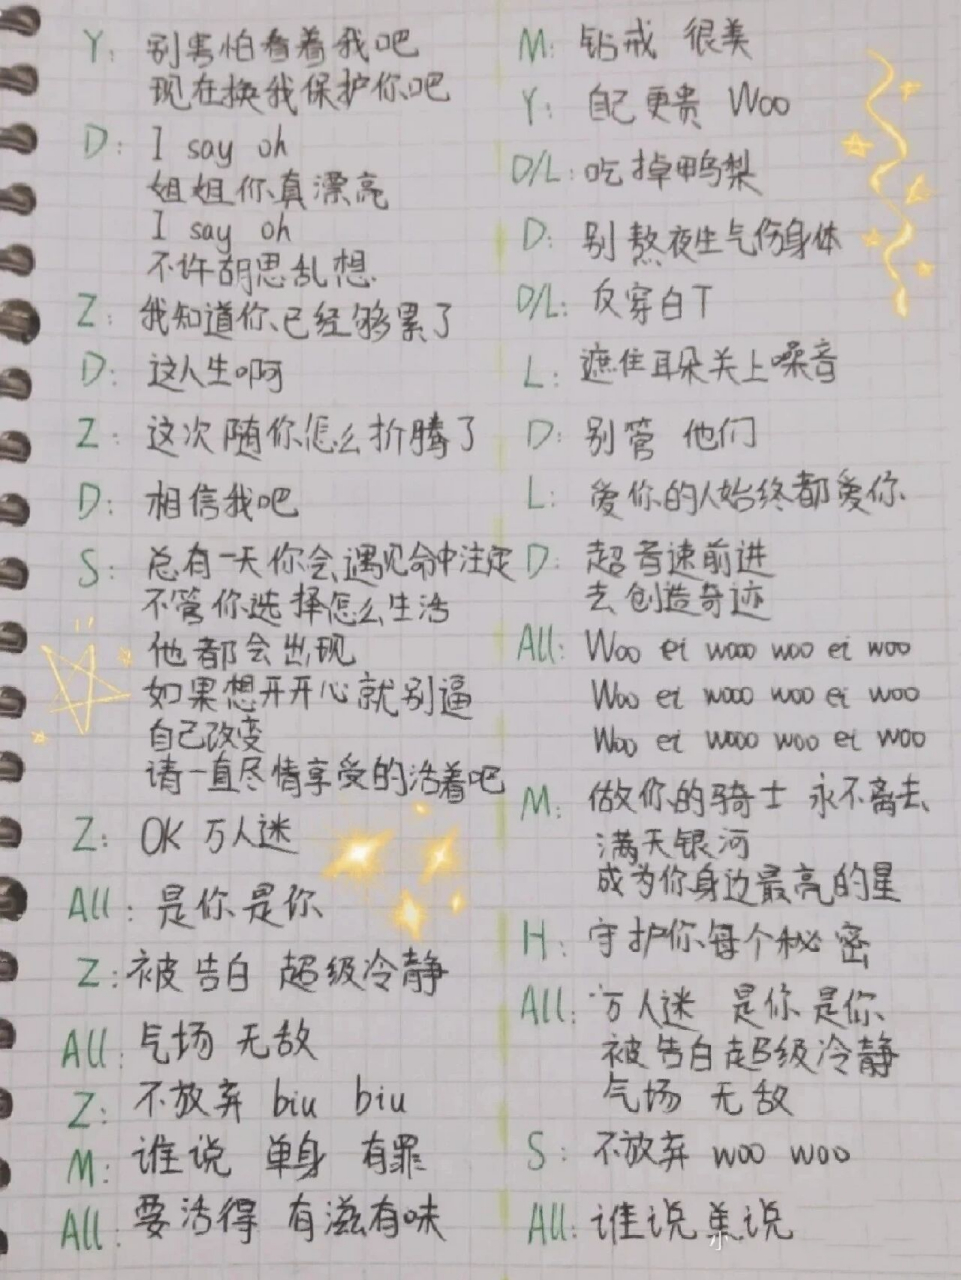 Y: 别害怕看着我吧
现在换我保护你吧
D: I say oh
姐姐你真漂亮
I say oh
不许胡思乱想
Z: 我知道你已经够累了
D: 这人生啊
Z: 这次随你怎么折腾了
D: 相信我吧
S: 总有一天你会遇见命中注定
不管你选择怎么生活
他都会出现
如果想开开心就别逼
自己改变
请一直尽情享受的活着吧
Z: OK 万人迷
All: 是你是你
Z: 被告白 超级冷静
All: 气场 无敌
Z: 不放弃 biu biu
M: 谁说 单身 有罪
All: 要活得 有滋有味
M: 钻戒 很美
Y: 自己更贵 Woo
D/L: 吃掉鸭梨
D: 别熬夜生气伤身体
D/L: 反穿白T
L: 遮住耳朵关上噪音
D: 别管 他们
L: 爱你的人始终都爱你
D: 超音速前进
去创造奇迹
All: Woo ei wooo woo ei woo
Woo ei wooo woo ei woo
Woo ei wooo woo ei woo
M: 做你的骑士 永不离去
满天银河
成为你身边最亮的星
H: 守护你每个秘密
All: 万人迷 是你是你
被告白超级冷静
气场 无敌
S: 不放弃 woo woo
All: 谁说 说